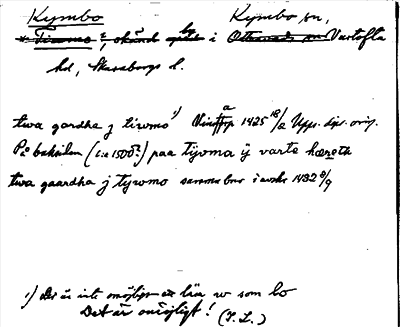 Kymbo Kymbo sn,
Tiwmo, okänd i Vartofta
hd, Skaraborgs l.
twa gardha j tiwmo 1) 1425 18/2 Upps. dipl. orig.
På baksidan (c:a 1500?) paa tijoma ÿ varte hæreth
twa gaardha j tywmo samma brev i avskr 1432 9/9
1) Det är inte omöjligt att läsa w som bo
Det är omöjligt! (I. L.)